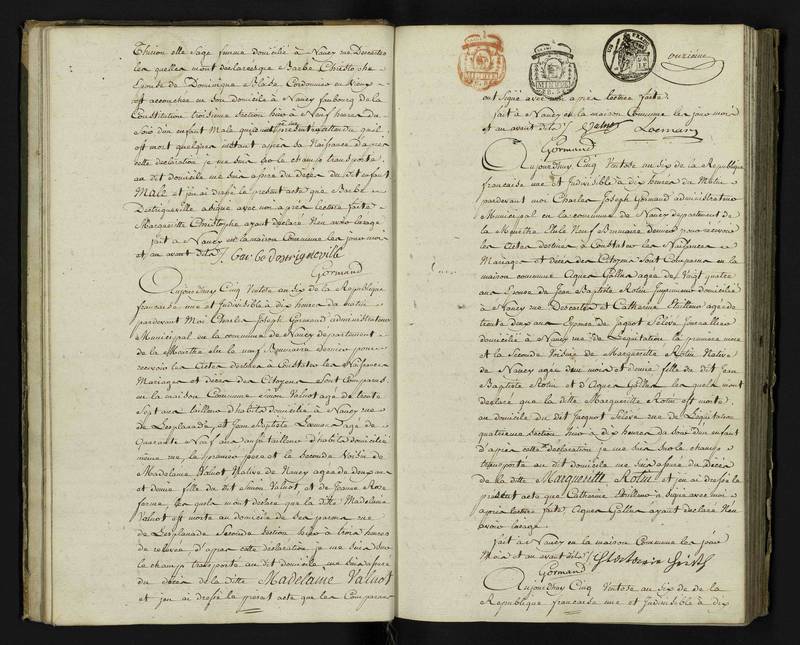 Thirion elle Sage femme domicilié à Nancy rue Descartes
les quelles m'ont déclaré que Barbe Christophe
Epouse de Dominique Blaise Cordonnier en Vieux
est accouchée en son domicile à Nancy faubourg de la
Constitution troisieme Section hier à Neuf heures du
Soir d'un enfant Male qui a été présenté du quel
est mort quelques instant après sa Naissance d'après
cette déclaration je me suis sur le champ transporté
au dit domicile me suis assuré du Décès du dit enfant
Male et j'en ai dressé le présent acte que Barbe
a signé avec moi après lecture faite
Marguerite Christophe ayant déclaré Neu avoir l'usage
fait à Nancy en la maison Commune les jour moi
et an avant dits
Gormand
Aujourdhuy Cinq Ventose an Six de la République
française une et Indivisible à dix heures du matin
pardevant Moi Charles Joseph Gormand administrateur
Municipal en la commune de Nancy departement
de la Meurthe élu le neuf Brumaire dernier pour
recevoir les Actes destinés à Constater les Naissances
Mariages et décès des Citoyens Sont Comparus
en la maison Commune Simon Valnot age de trente
Sept ans tailleur d'habits domicilié à Nancy rue
de Lesplanade et Jean Baptiste Loemar agé de
Quarante Neuf ans aussi tailleur d'habits domicilié
même rue le premier père et le Seconde Voisin de
Madelaine Valnot Native de Nancy agée de deux ans
et demie fille du dit Simon Valnot et de Jeanne Rose
ferme les quels m'ont déclaré que la ditte Madelaine
Valnot est morte au domicile de ses parens rue
de Lesplanade Seconde Section hier à trois heures
de relevée d'apres cette déclaration je me suis sur
le champ transporté au dit domicile me suis assuré
du décès de la ditte Madelaine Valnot
et j'en ai dressé le présent acte que les Comparans
onzieme
ont signé avec moi après lecture faite.
fait à Nancy en la maison Commune les jour mois
et an avant dits Valnot Loemar
Gormand
Aujourdhuy Cinq Ventose an Six de la République
française une et Indivisible à dix heures du Matin
pardevant moi Charles Joseph Gormand administrateur
Municipal en la commune de Nancy département de
la Meurthe élu le Neuf Brumaire dernier pour recevoir
les Actes destinés à Constater les Naissances
Mariages et décès des Citoyens Sont Comparus en la
maison commune Agnes Gallier agée de Vingt quatre
ans Epouse de Jean Baptiste Rolin Imprimeur domiciliée
à Nancy rue Descartes et Catherine agée de
trente deux ans Epouse de Jacquot Selève Journallier
domicilié à Nancy rue de Lequitation la premiere mere
et la Seconde Voisine de Marguerite Rolin Native
de Nancy agée d'un mois et demie fille du dit Jean
Baptiste Rolin et d'Agnes Gallier les quels m'ont
déclaré que la ditte Marguerite Rolin est morte
au domicile du dit Jacquot Selève rue de Lequitation
quatrieme section hier à dix heures du soir d'un enfant
d'après cette déclaration je me suis sur le champ
transporté au dit domicile me suis assuré du Décès
de la ditte Marguerite Rolin et j'en ai dressé le
présent acte que Catherine a signé avec moi
après lecture faite Agnes Gallier ayant déclaré Neu
avoir l'usage.
fait à Nancy en la maison Commune les jour
Mois et an avant dits
Gormand
Aujourdhuy Cinq Ventose an Six de de la
République française une et Indivisible à dix